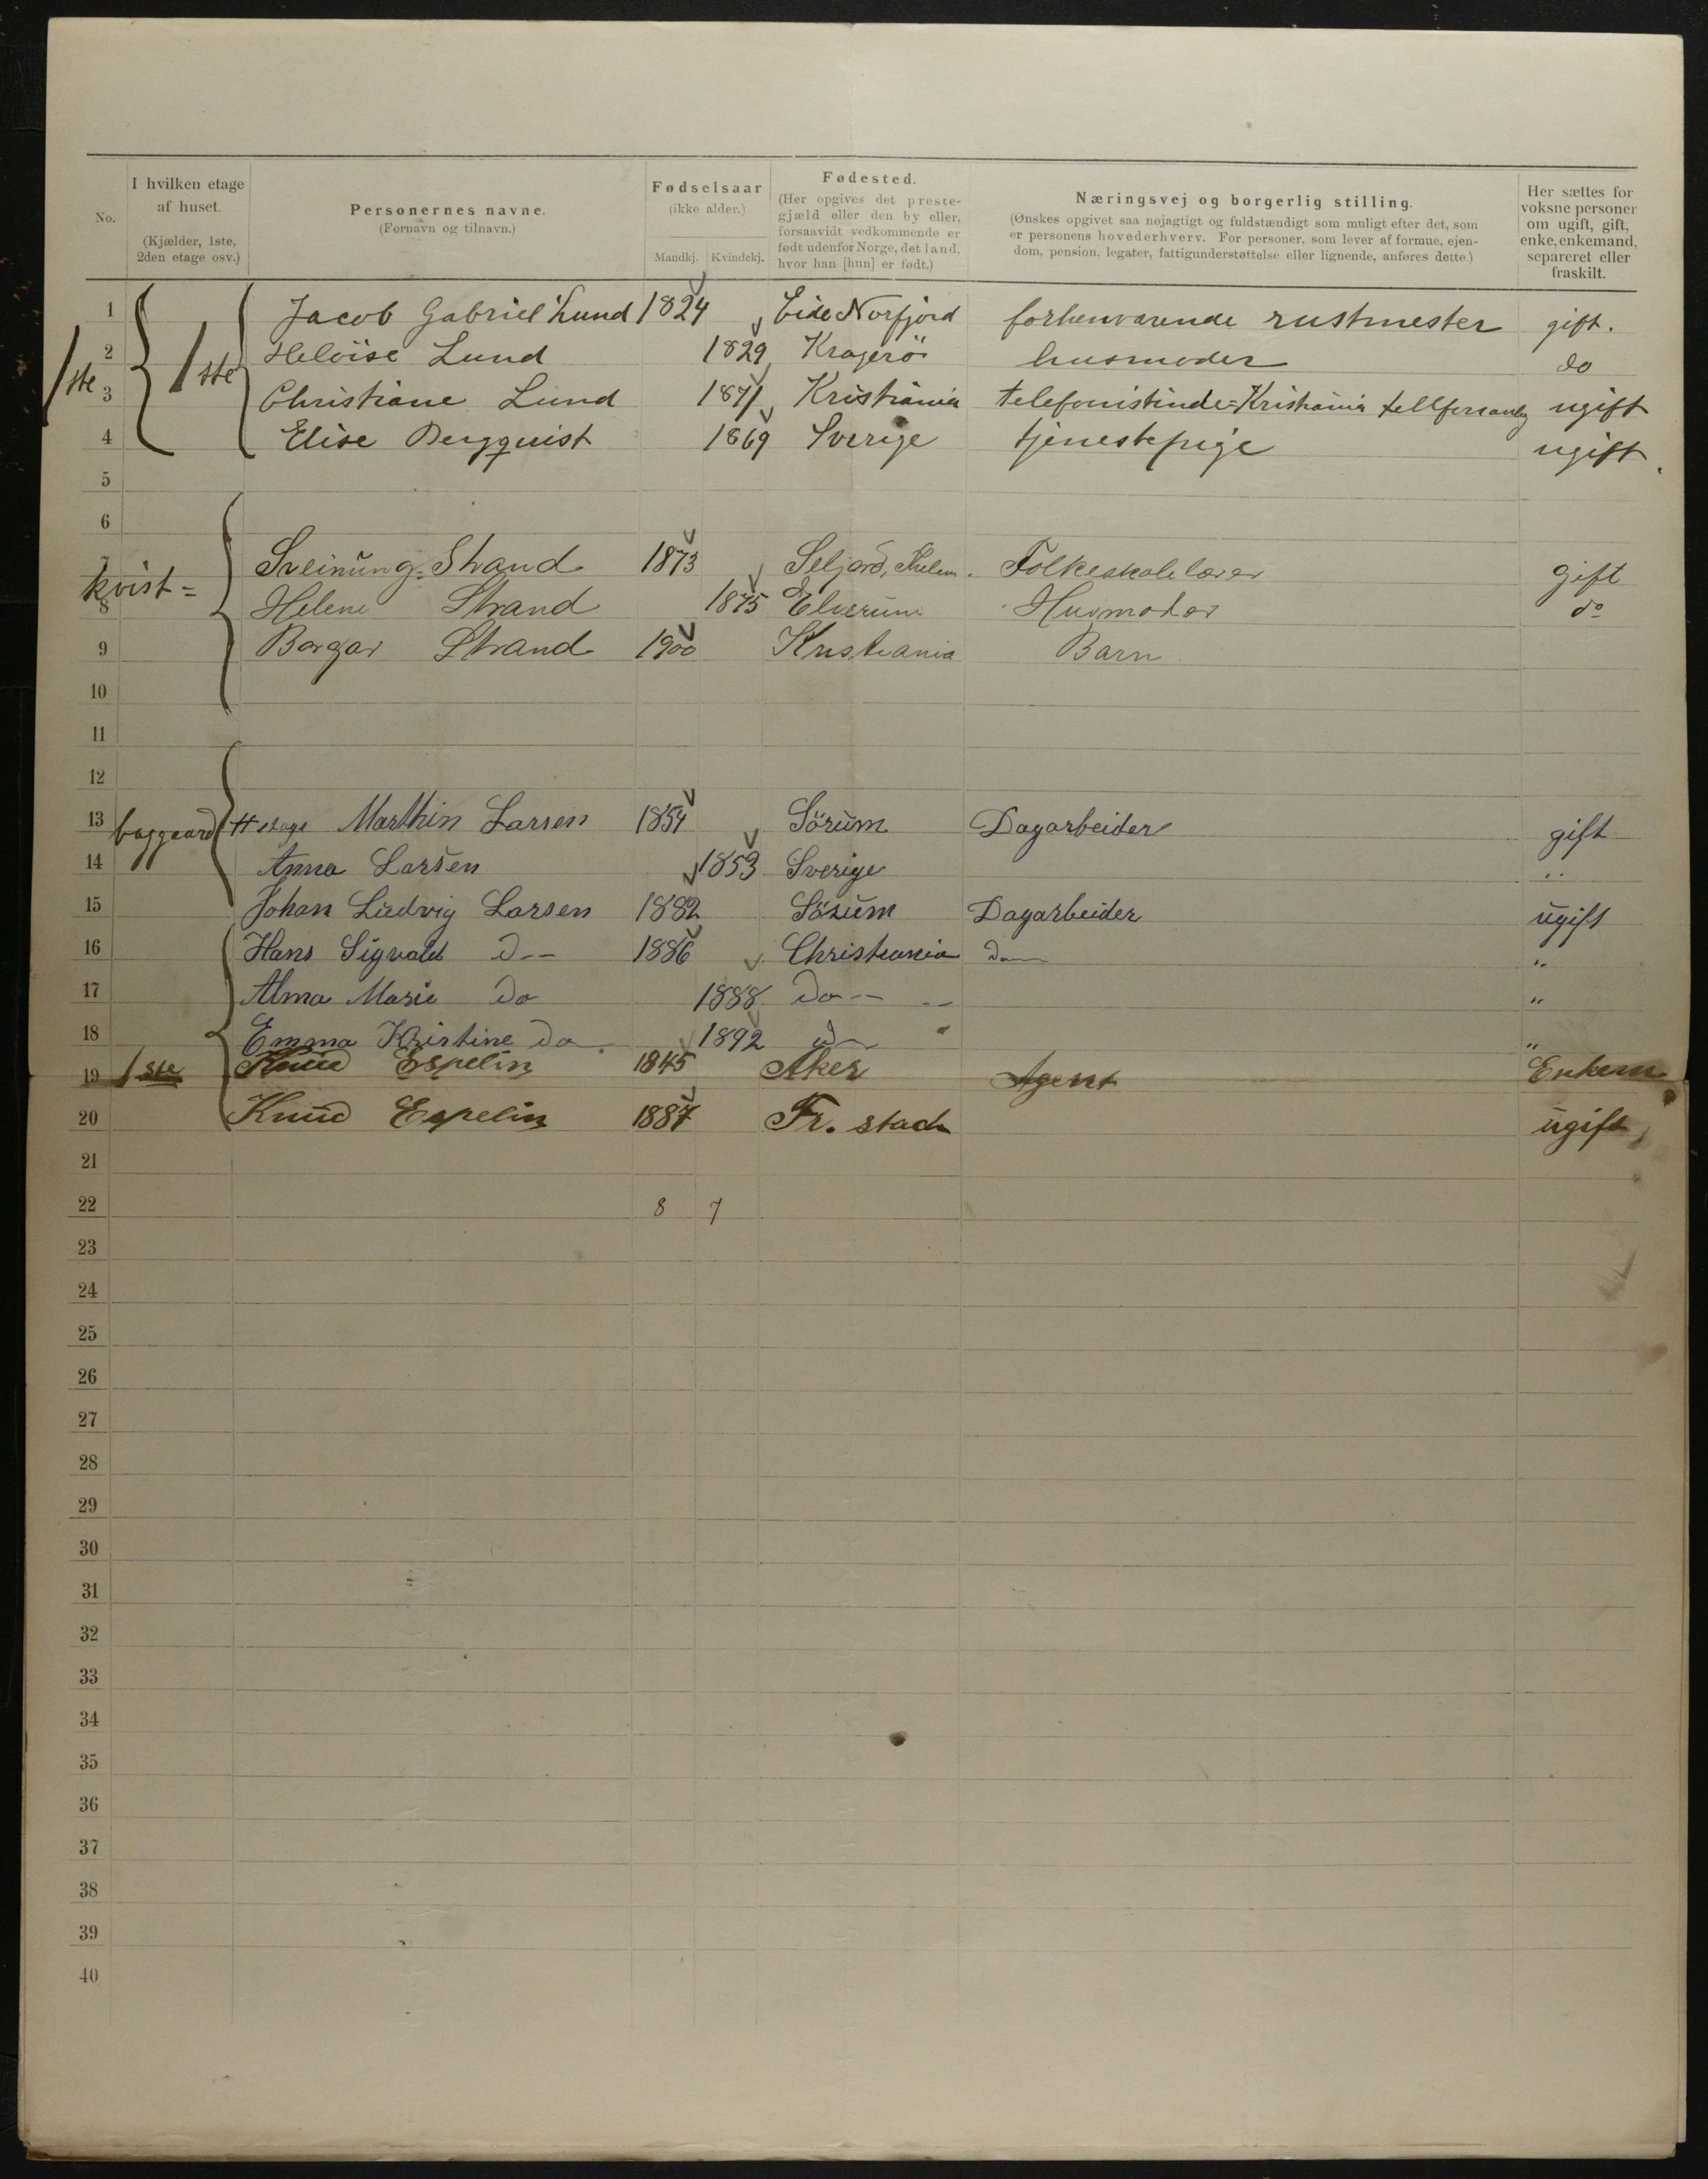 No.
I hvilken etage af huset. (Kjælder, 1ste, 2den etage osv.)
Personernes navne. (Fornavn og tilnavn.)
Fødselsaar (ikke alder.) Mandkj. Kvindekj.
Fødested. (Her opgives det prestegjæld eller den by eller, forsaavidt vedkommende er født udenfor Norge, det land, hvor han [hun] er født.)
Næringsvej og borgerlig stilling. (Ønskes opgivet saa nøjagtigt og fuldstændigt som muligt efter det, som er personens hovederhverv. For personer, som lever af formue, ejendom, pension, legater, fattigunderstøttelse eller lignende, anføres dette.)
Her sættes for voksne personer om ugift, gift, enke, enkemand, separeret eller fraskilt.
1ste 1ste
1 Jacob Gabriel Lund 1824 Eide Norfjord forhenværende rustmester gift.
2 Heloïse Lund 1829 Kragerö husmoder do
3 Christiane Lund 1871 Kristiania telefonistinde = Kristiania ugift
4 Elise Bergquist 1869 Sverige tjenestepige ugift.
5
6
7 kvist = Sveinung Strand 1873 Seljord, Thelem. Folkeskolelærer gift
8 Helene Strand 1875 Elverum Husmoder do
9 Borgar Strand 1900 Kristiania Barn
10
11
12
13 baggaard # etage Marthin Larsen 1854 Sörum Dagarbeider gift
14 Anna Larsen 1853 Sverige "
15 Johan Ludvig Larsen 1882 Sörum Dagarbeider ugift
16 Hans Sigvald D-- 1886 Christiania do "
17 Alma Marie Do 1888 Do -- "
18 Emma Kristine Do 1892 do "
19 1ste Knud Espelin 1845 Aker Agent Enkem
20 Knud Espelin 1887 Fr. stad ugift
21
22 8 7
23
24
25
26
27
28
29
30
31
32
33
34
35
36
37
38
39
40